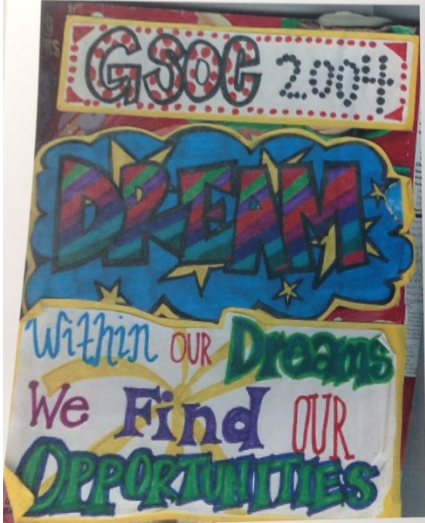 GSOC 2004
DREAM
Within OUR Dreams
We Find OUR
OPPORTUNITIES